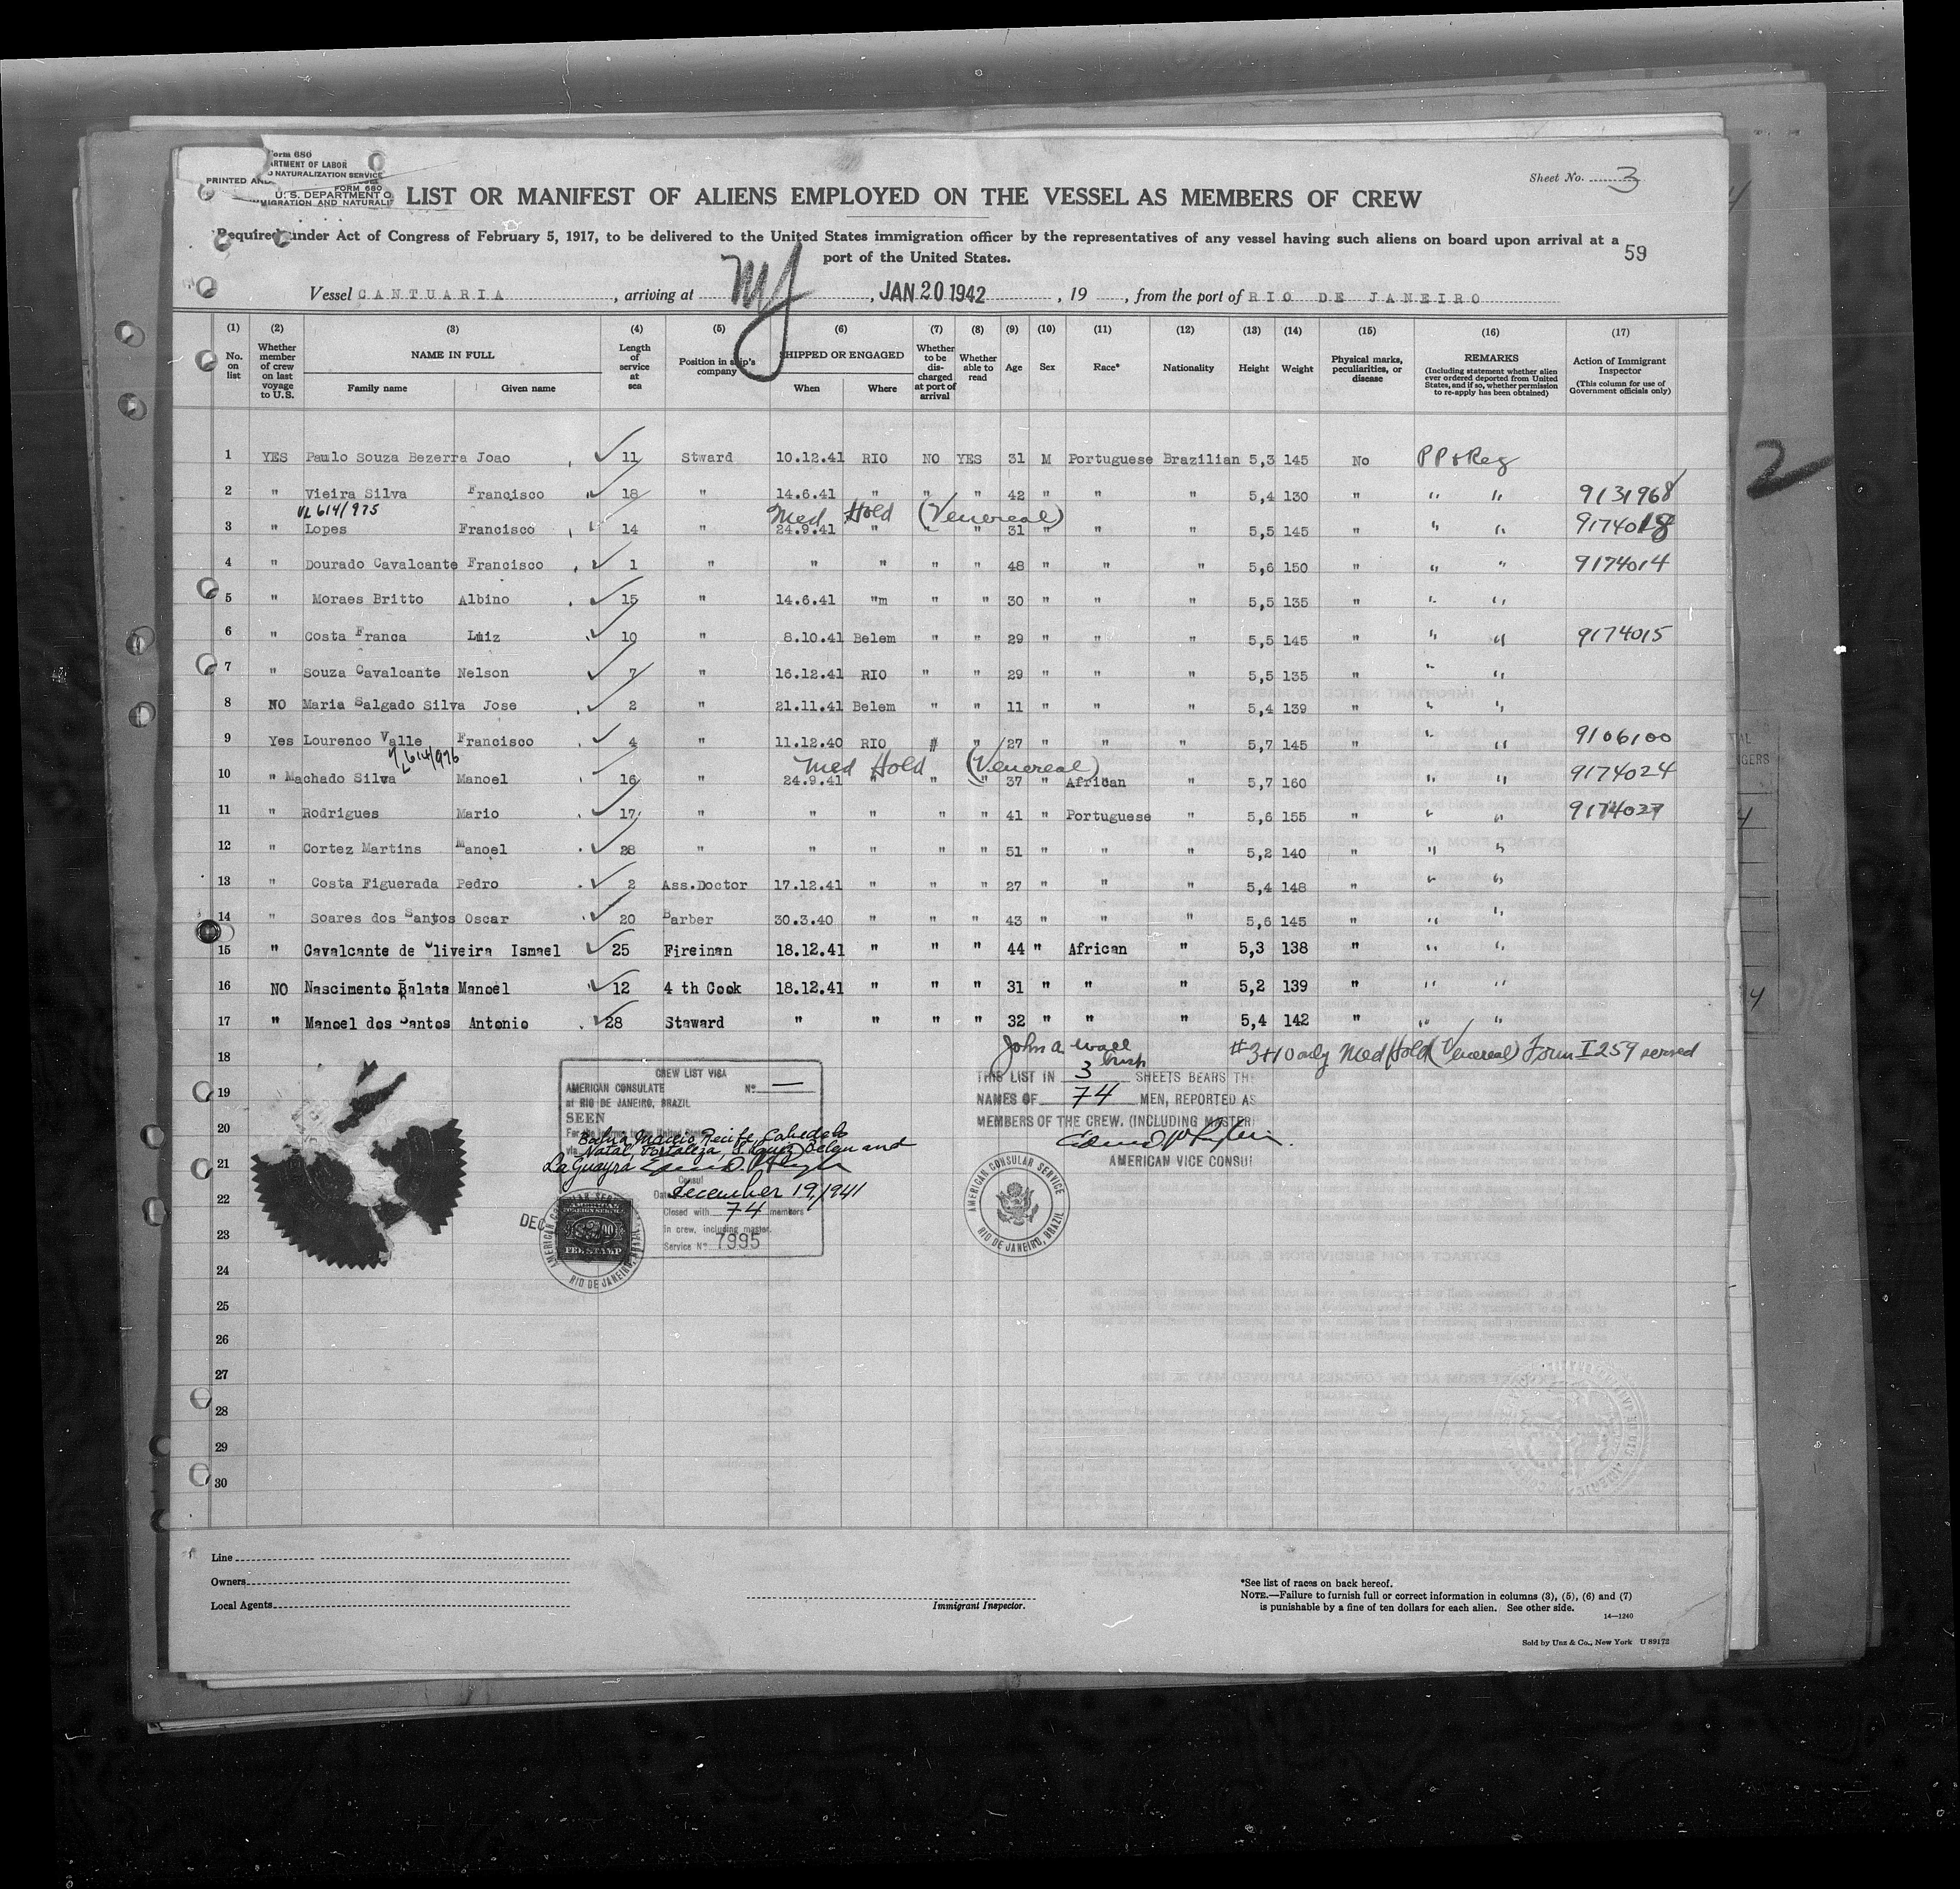 Form 680
ARTMENT OF LABOR
NATURALIZATION SERVICE
PRINTED AND
FORM 680
U. S. DEPARTMENT O
MIGRATION AND NATURALI
Sheet No. 3
LIST OR MANIFEST OF ALIENS EMPLOYED ON THE VESSEL AS MEMBERS OF CREW
Required under Act of Congress of February 5, 1917, to be delivered to the United States immigration officer by the representatives of any vessel having such aliens on board upon arrival at a
port of the United States.
59
Vessel CANTUARIA, arriving at NY, JAN 20 1942, 19, from the port of RIO DE JANEIRO
(1) (2) (3) (4) (5) (6) (7) (8) (9) (10) (11) (12) (13) (14) (15) (16) (17)
No. on list
Whether member of crew on last voyage to U.S.
NAME IN FULL
Family name Given name
Length of service at sea
Position in ship's company
SHIPPED OR ENGAGED
When Where
Whether to be discharged at port of arrival
Whether able to read
Age Sex Race* Nationality Height Weight
Physical marks, peculiarities, or disease
REMARKS
(Including statement whether alien ever ordered deported from United States, and if so, whether permission to re-apply has been obtained)
Action of Immigrant Inspector
(This column for use of Government officials only)
1 YES Paulo Souza Bezerra Joao 11 Stward 10.12.41 RIO NO YES 31 M Portuguese Brazilian 5,3 145 No PP & Reg
2 " Vieira Silva Francisco 18 " 14.6.41 " " " 42 " " " 5,4 130 " " " 9131968
VL 614/975 Med Hold (Venereal)
3 " Lopes Francisco 14 " 24.9.41 " " " 31 " " " 5,5 145 " " " 9174018
4 " Dourado Cavalcante Francisco 1 " " " " " 48 " " " 5,6 150 " " " 9174014
5 " Moraes Britto Albino 15 " 14.6.41 "m " " 30 " " " 5,5 135 " " "
6 " Costa Franca Luiz 10 " 8.10.41 Belem " " 29 " " " 5,5 145 " " " 9174015
7 " Souza Cavalcante Nelson 7 " 16.12.41 RIO " " 29 " " " 5,5 135 " " "
8 NO Maria Salgado Silva Jose 2 " 21.11.41 Belem " " 11 " " " 5,4 139 " " "
9 Yes Lourenco Valle Francisco 4 " 11.12.40 RIO " " 27 " " " 5,7 145 " " " 9106100
VL614/976 Med Hold (Venereal)
10 " Machado Silva Manoel 16 " 24.9.41 " " " 37 " African " 5,7 160 " " 9174024
11 " Rodrigues Mario 17 " " " " " 41 " Portuguese " 5,6 155 " " " 9174027
12 " Cortez Martins Manoel 28 " " " " " 51 " " " 5,2 140 " " "
13 " Costa Figuerada Pedro 2 Ass.Doctor 17.12.41 " " " 27 " " " 5,4 148 " " "
14 " Soares dos Santos Oscar 20 Barber 30.3.40 " " " 43 " " " 5,6 145 " " "
15 " Cavalcante de Oliveira Ismael 25 Fireinan 18.12.41 " " " 44 " African " 5,3 138 " " "
16 NO Nascimento Balata Manoel 12 4 th Cook 18.12.41 " " " 31 " " " 5,2 139 " " "
17 " Manoel dos Santos Antonio 28 Staward " " " " 32 " " " 5,4 142 " " "
18
John A Wall
Insp
#3+10 only Med Hold (Venereal) Form I 259 served
19
20
21
22
23
24
25
26
27
28
29
30
CREW LIST VISA
AMERICAN CONSULATE No. —
at RIO DE JANEIRO, BRAZIL
SEEN
For the journey to the United States
via Bahia, Maceio, Recife, Cabedelo
Natal, Fortaleza, S. Luiz, Belem and
La Guayra
Consul
Date December 19, 1941
Closed with 74 members
in crew, including master.
Service No. 7995
DEC
AMERICAN
FOREIGN SERVICE
FEE STAMP
AMERICAN CONSULAR SERVICE
RIO DE JANEIRO, BRAZIL
THIS LIST IN 3 SHEETS BEARS TH
NAMES OF 74 MEN, REPORTED AS
MEMBERS OF THE CREW. (INCLUDING MASTER
AMERICAN VICE CONSUL
AMERICAN CONSULAR SERVICE
RIO DE JANEIRO, BRAZIL
2
Line
Owners
Local Agents
Immigrant Inspector.
*See list of races on back hereof.
NOTE.—Failure to furnish full or correct information in columns (3), (5), (6) and (7)
is punishable by a fine of ten dollars for each alien. See other side.
14—1240
Sold by Unz & Co., New York U 89172